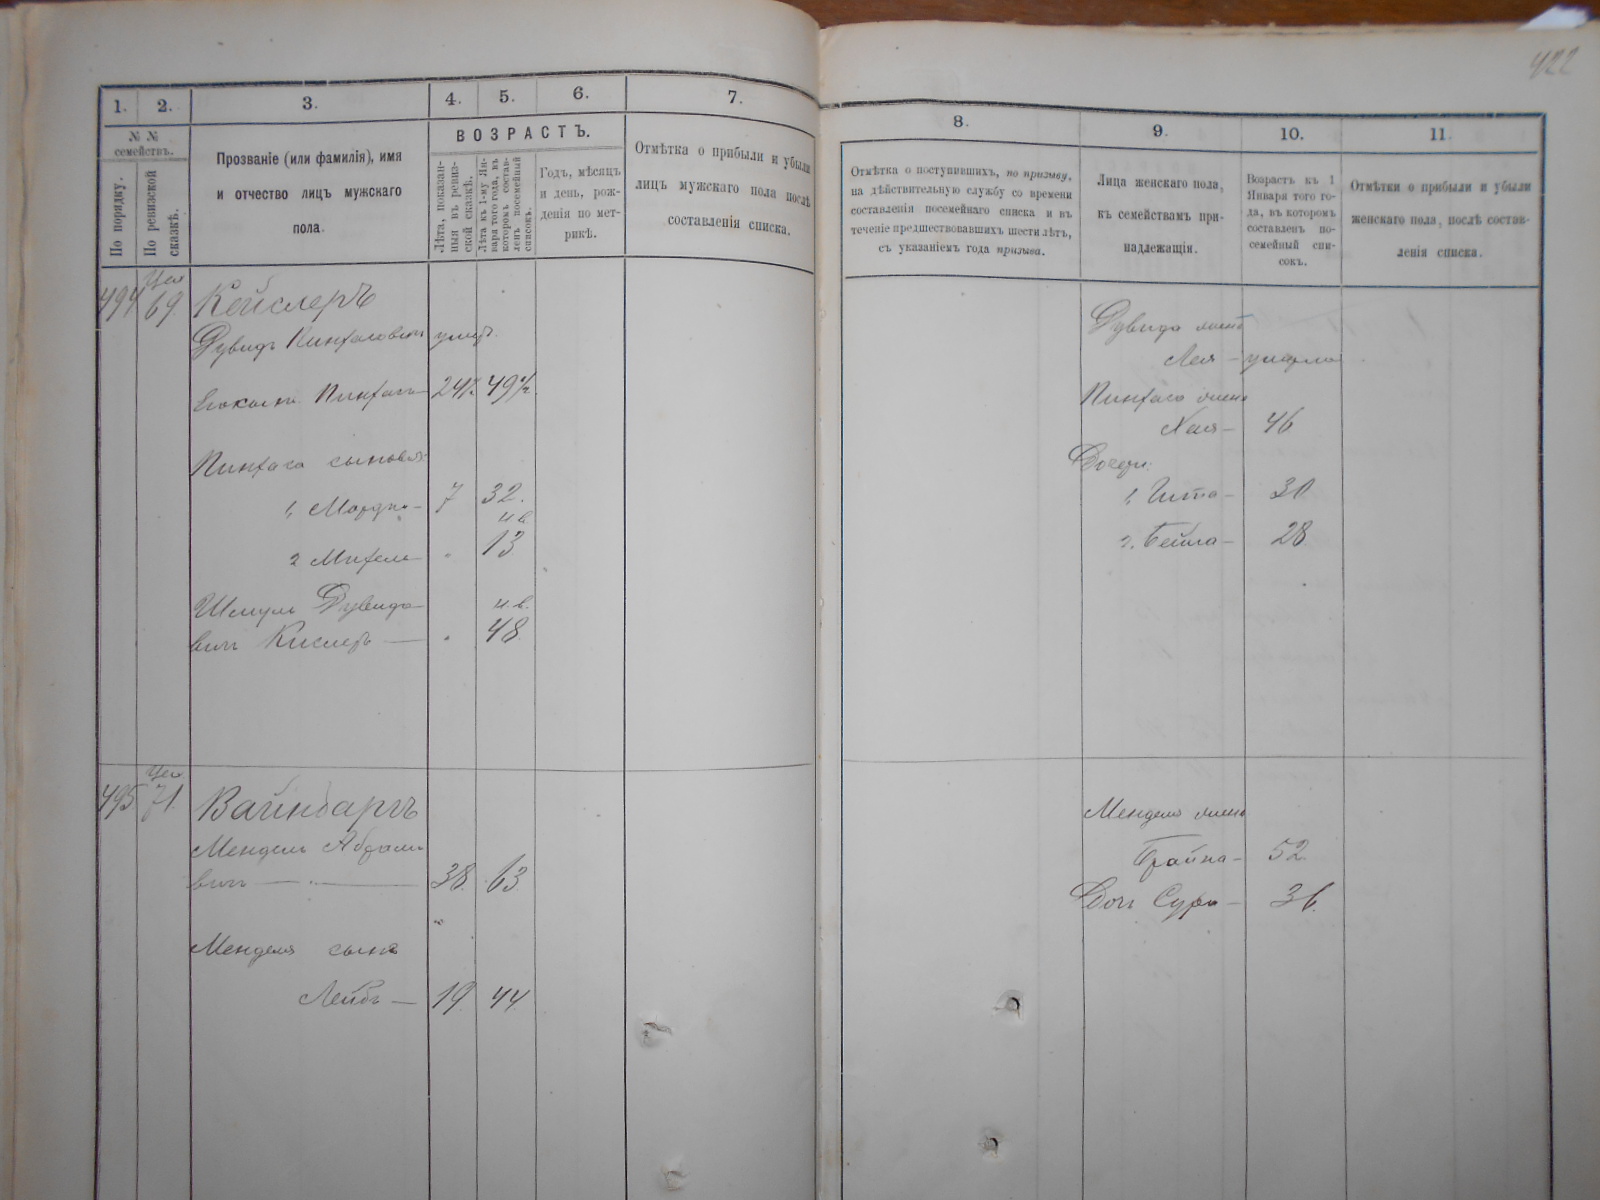 422
1.
2.
3.
4.
5.
6.
7.
№ №
семействъ.
По порядку.
По ревизской
сказкѣ.
Прозваніе (или фамилія), имя
и отчество лицъ мужскаго
пола.
ВОЗРАСТЪ.
Лѣта, показан-
ныя въ ревиз-
ской сказкѣ.
Лѣта къ 1-му Ян-
варя того года, въ
которомъ состав-
ленъ посемейный
списокъ.
Годъ, мѣсяцъ
и день, рож-
денія по мет-
рикѣ.
Отмѣтка о прибыли и убыли
лицъ мужскаго пола послѣ
составленія списка.
494
69.
Кейслеръ
Дувидъ
Пинхаса сыновья:
7 32.
н.в.
2 13
Шмуль Дувидо-
н.в.
вичъ Кислеръ — 48
495
71.
Вайнбаргъ
Мендель Абрамо-
вичъ — 38. 63
Менделя сынъ
Лейбъ — 19. 44.
8.
9.
10.
11.
Отмѣтка о поступившихъ, по призыву,
на дѣйствительную службу со времени
составленія посемейнаго списка и въ
теченіе предшествовавшихъ шести лѣтъ,
съ указаніемъ года призыва.
Лица женскаго пола,
къ семействамъ при-
надлежащіи.
Возрастъ къ 1
Января того го-
да, въ которомъ
составленъ по-
семейный спи-
сокъ.
Отмѣтки о прибыли и убыли
женскаго пола, послѣ состав-
ленія списка.
Дувида жена
Лея — умерла
Пинхаса жена
46
Дочери:
30
2. Бейла — 28
Менделя жена
52
Дочь Сура — 36.